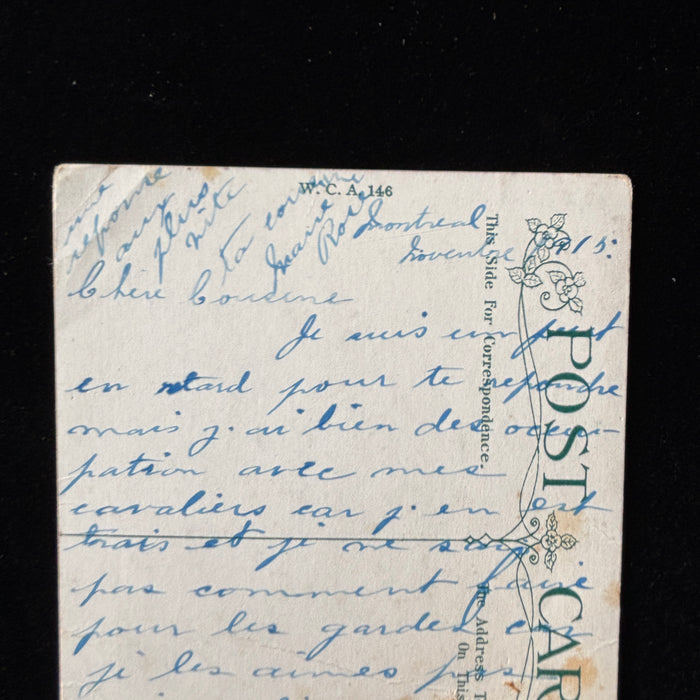 une
reponse
aux
plus
vite
ta cousine
Marie
Rose
W. C. A. 146
Montreal
Novembre 1915:
Chère Cousine
Je suis un peut
en retard pour te repondre
mais j'ai bien des occu-
pation avec mes
cavaliers car j'en est
trais et je ne sais
pas comment faire
pour les garder car
je les aimes pas
This Side For Correspondence.
The Address
On This
POST CAR